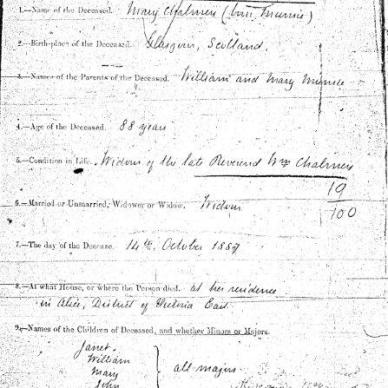 1.—Name of the Deceased. Mary Chalmers (born Munnie)
2.—Birth-place of the Deceased. Glasgow, Scotland.
3.—Names of the Parents of the Deceased. William and Mary Munnie
4.—Age of the Deceased. 88 years
5.—Condition in Life. Widow of the late Reverend Wm Chalmers
19
100
6.—Married or Unmarried, Widower or Widow. Widow
7.—The day of the Decease. 14th October 1889
8.—At what House, or where the Person died. at her residence
in Alice, District of Victoria East
9.—Names of the Children of Deceased, and whether Minors or Majors.
Janet
William
Mary
John
all majors